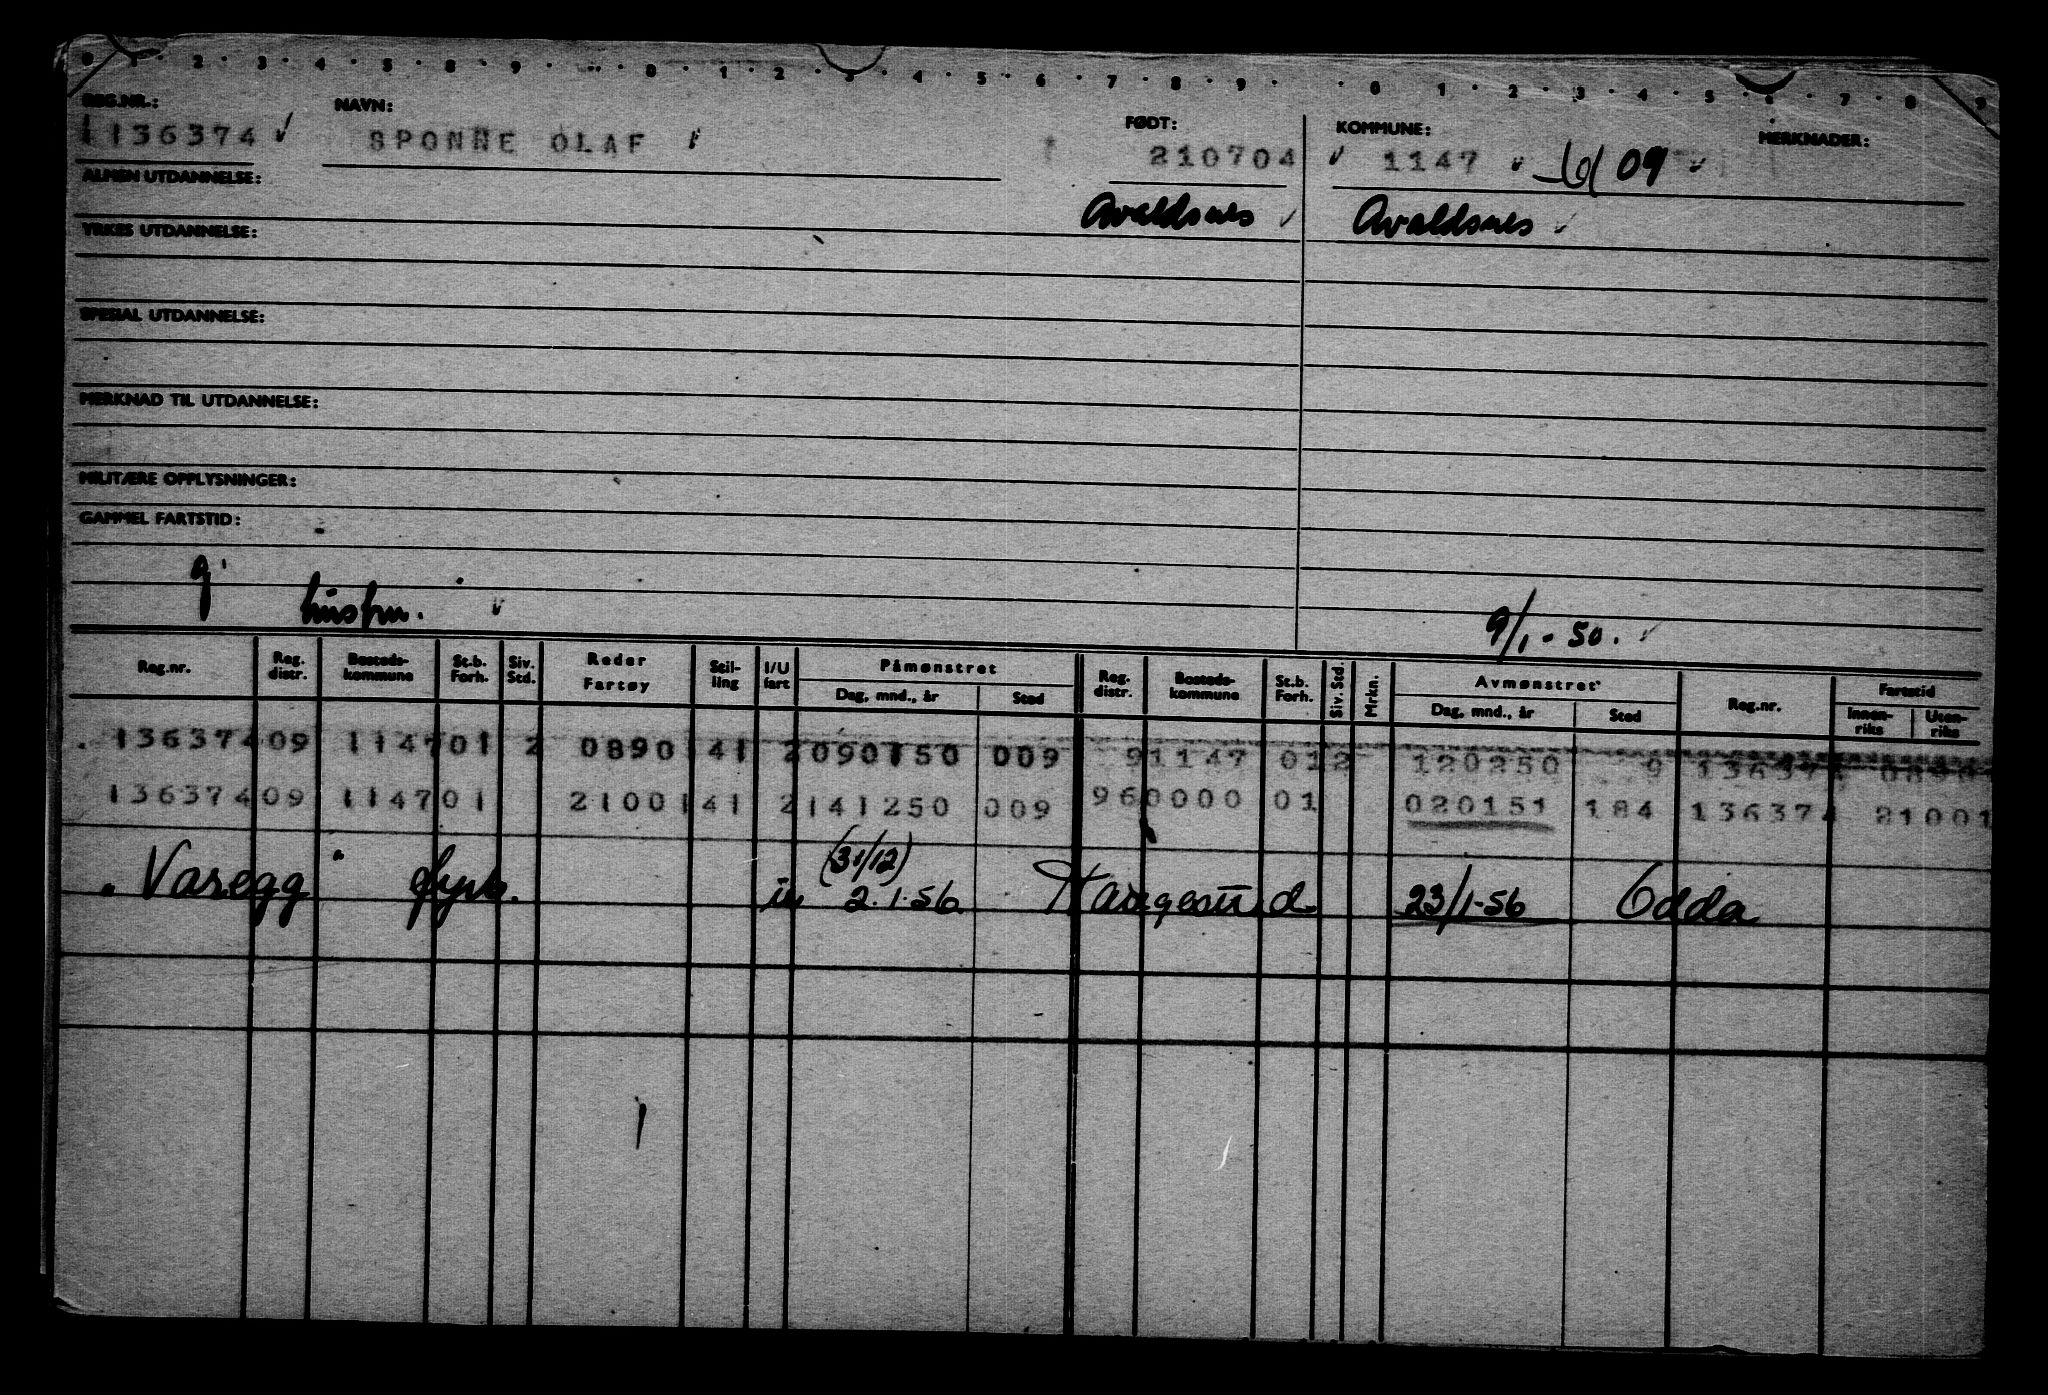 0 · 1 · 2 · 3 · 4 · 5 · 8 · 9 · · 0 · 1 · 2 · 3 · 4 · 5 · 6 · 7 · 8 · 9 · · 0 · 1 · 2 · 3 · 4 · 5 · 6 · 7 · 8 · 9
REG.NR.: NAVN: FØDT: KOMMUNE: MERKNADER:
1136374 SPONNE OLAF 210704 1147 09
ALMEN UTDANNELSE:
Avaldsnes Avaldsnes
YRKES UTDANNELSE:
SPESIAL UTDANNELSE:
MERKNAD TIL UTDANNELSE:
MILITÆRE OPPLYSNINGER:
GAMMEL FARTSTID:
g husfru. 9/1-50.
Reg.nr. Reg. distr. Bosteds-kommune St.b. Forh. Siv. Std. Reder Fartøy Stil-ling I/U fart Påmønstret Reg. distr. Bosteds-kommune St.b. Forh. Siv. Std. Mrkn. Avmønstret Reg.nr. Fartstid
Dag, mnd., år Sted Dag, mnd., år Sted Innen-riks Uten-riks
136374 09 1147 01 2 0890 141 2 090150 009 9 1147 01 2 120250 9 136374
136374 09 1147 01 2100 141 2 141250 009 96 0000 01 020151 184 136374 21001
(31/12)
Varegg fyrb. in 2.1.56 Haugesund 23/1-56 Odda